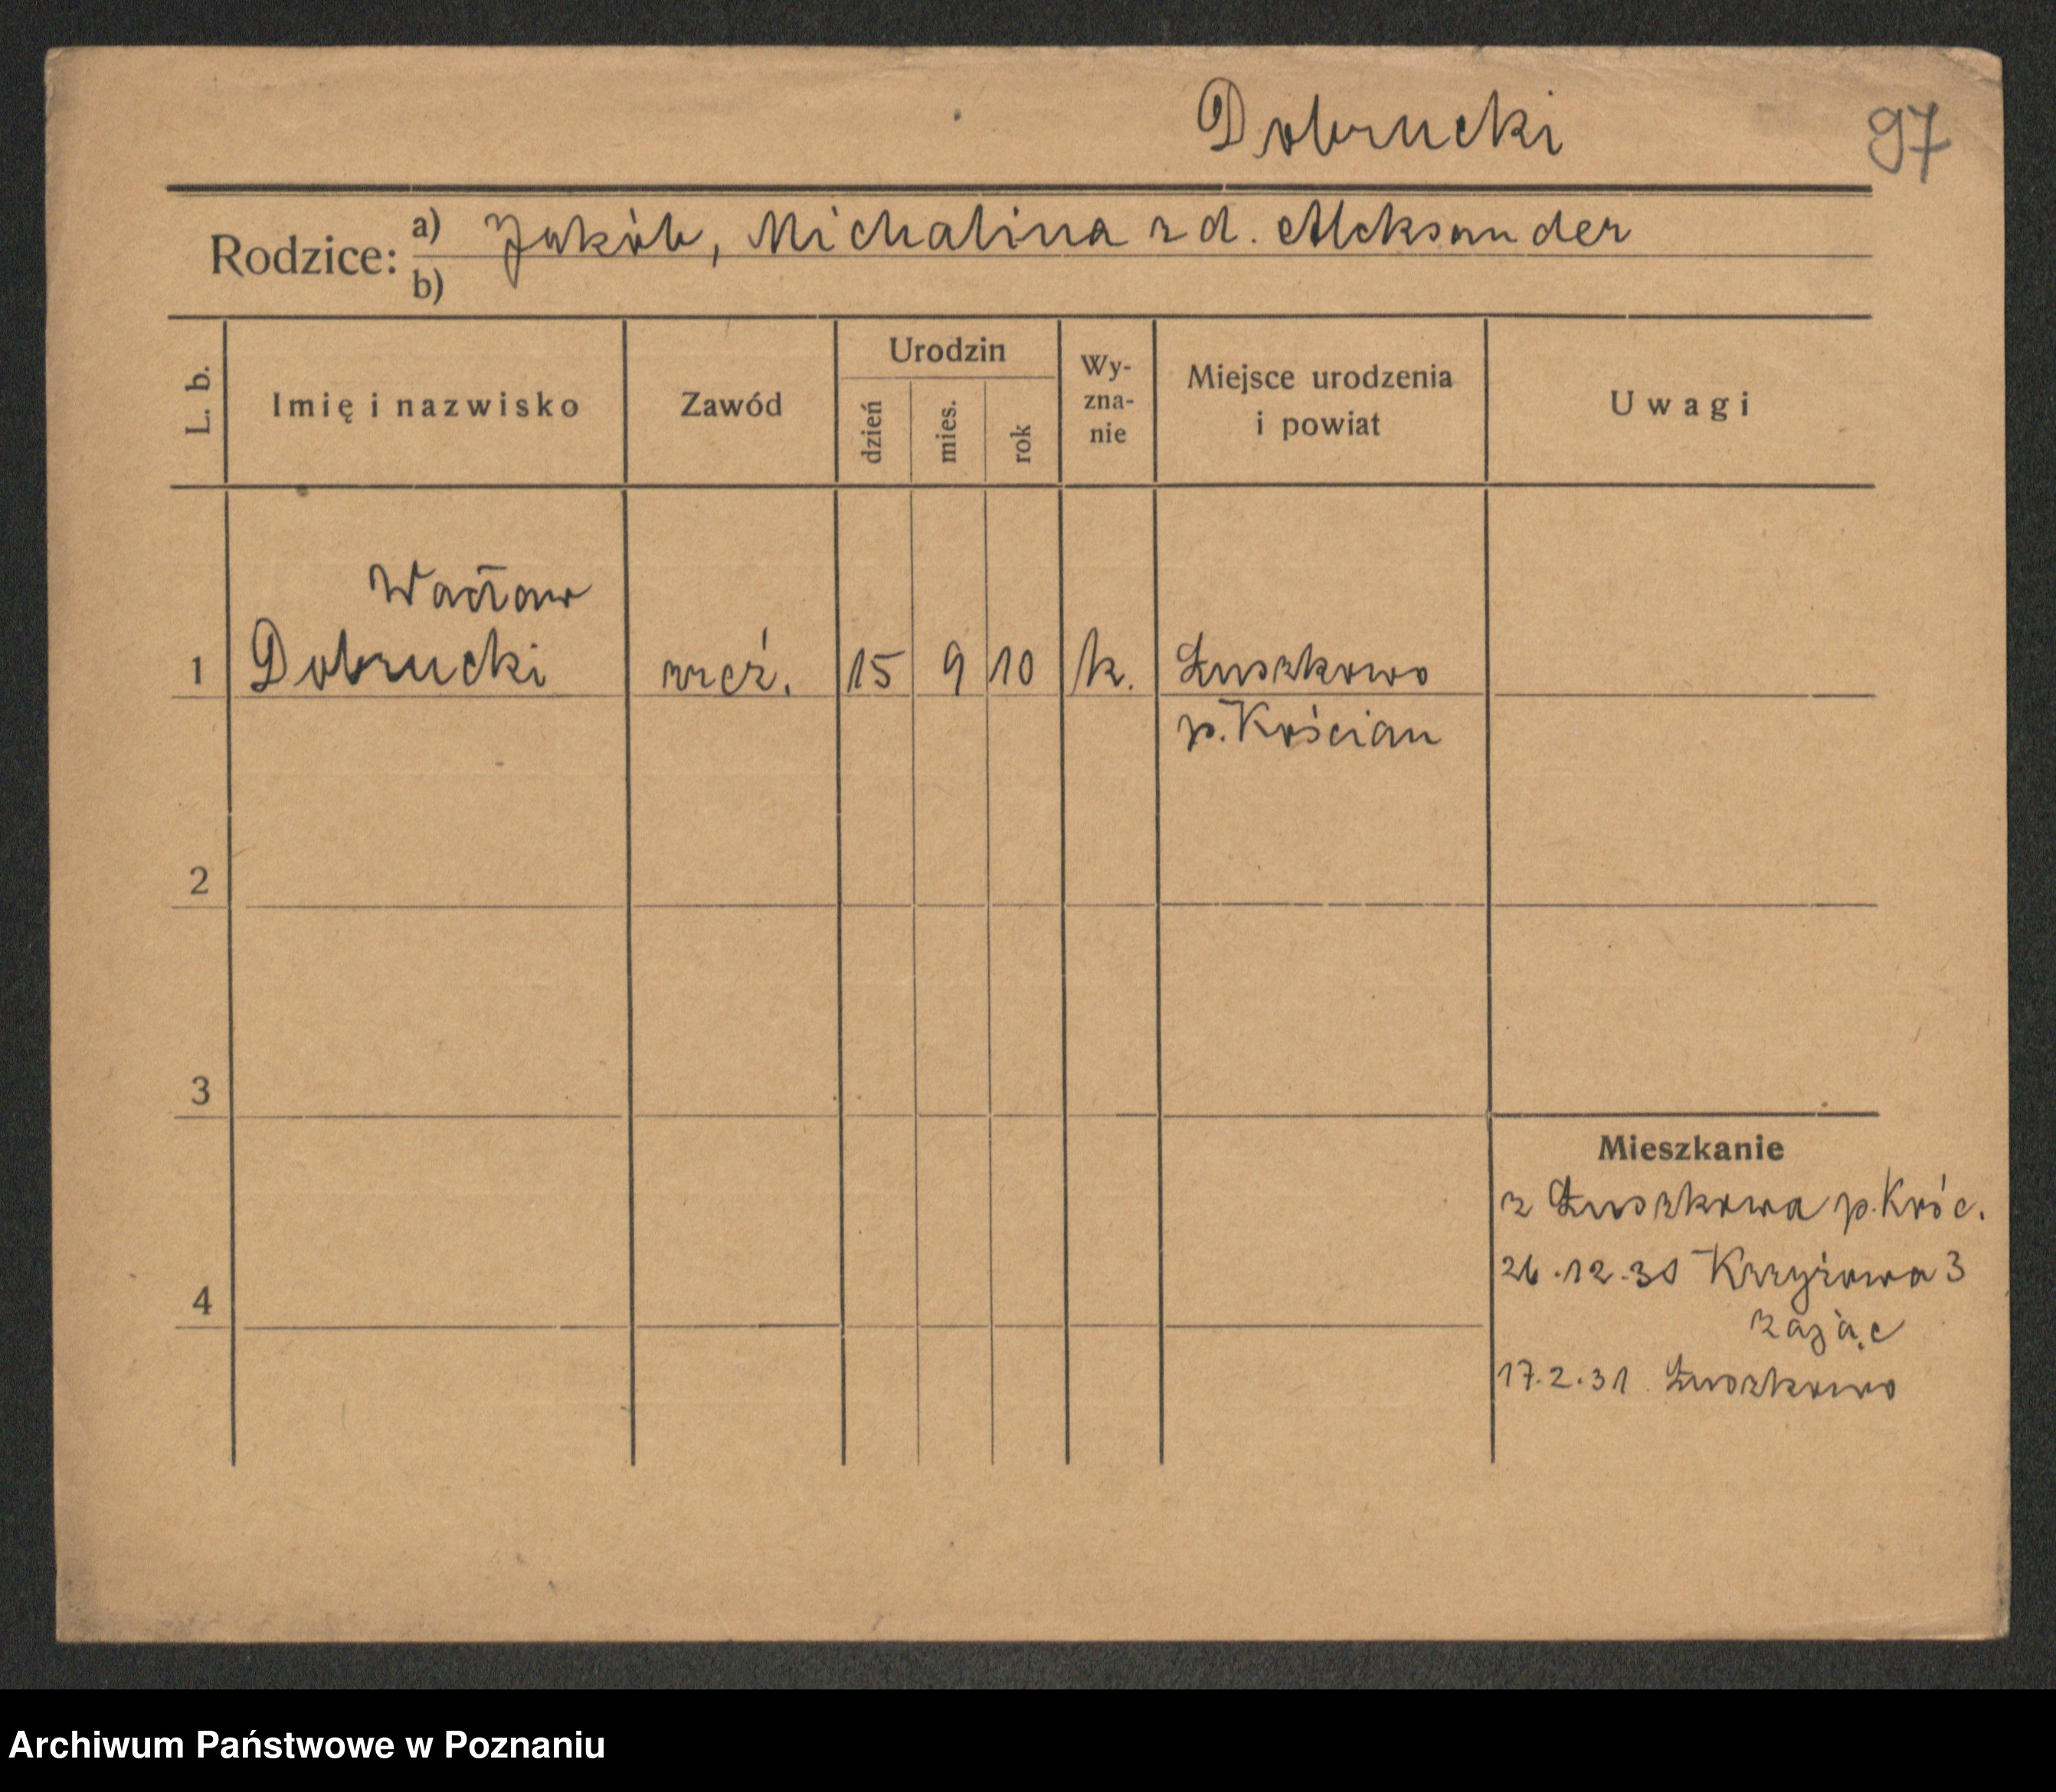 Dobrucki
97
Rodzice: a) Jakób, Michalina z d. Aleksander
b)
L. b.
Imię i nazwisko
Zawód
Urodzin
dzień
mies.
rok
Wy-
zna-
nie
Miejsce urodzenia
i powiat
Uwagi
Wacław
1 Dobrucki rzeź. 15 9 10 k. Łuszkowo
p. Kościan
2
3
4
Mieszkanie
z Łuszkowa p. Kośc.
26.12.30 Krzyżowa 3
Zając
17.2.31. Łuszkowo
Archiwum Państwowe w Poznaniu